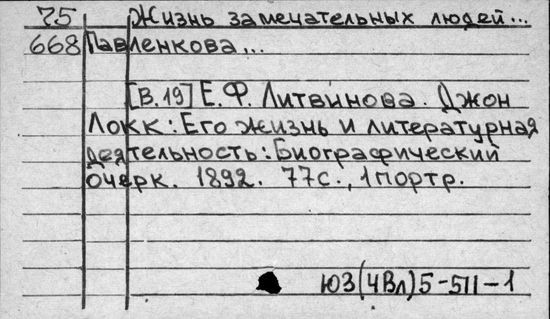 75 Жизнь замечательных людей...
668 Павленкова...
[В.19] Е.Ф. Литвинова. Джон
Локк: Его жизнь и литературная
деятельность: Биографический
очерк. 1892. 77с., 1портр.
Ю3(4Вл)5-511-1